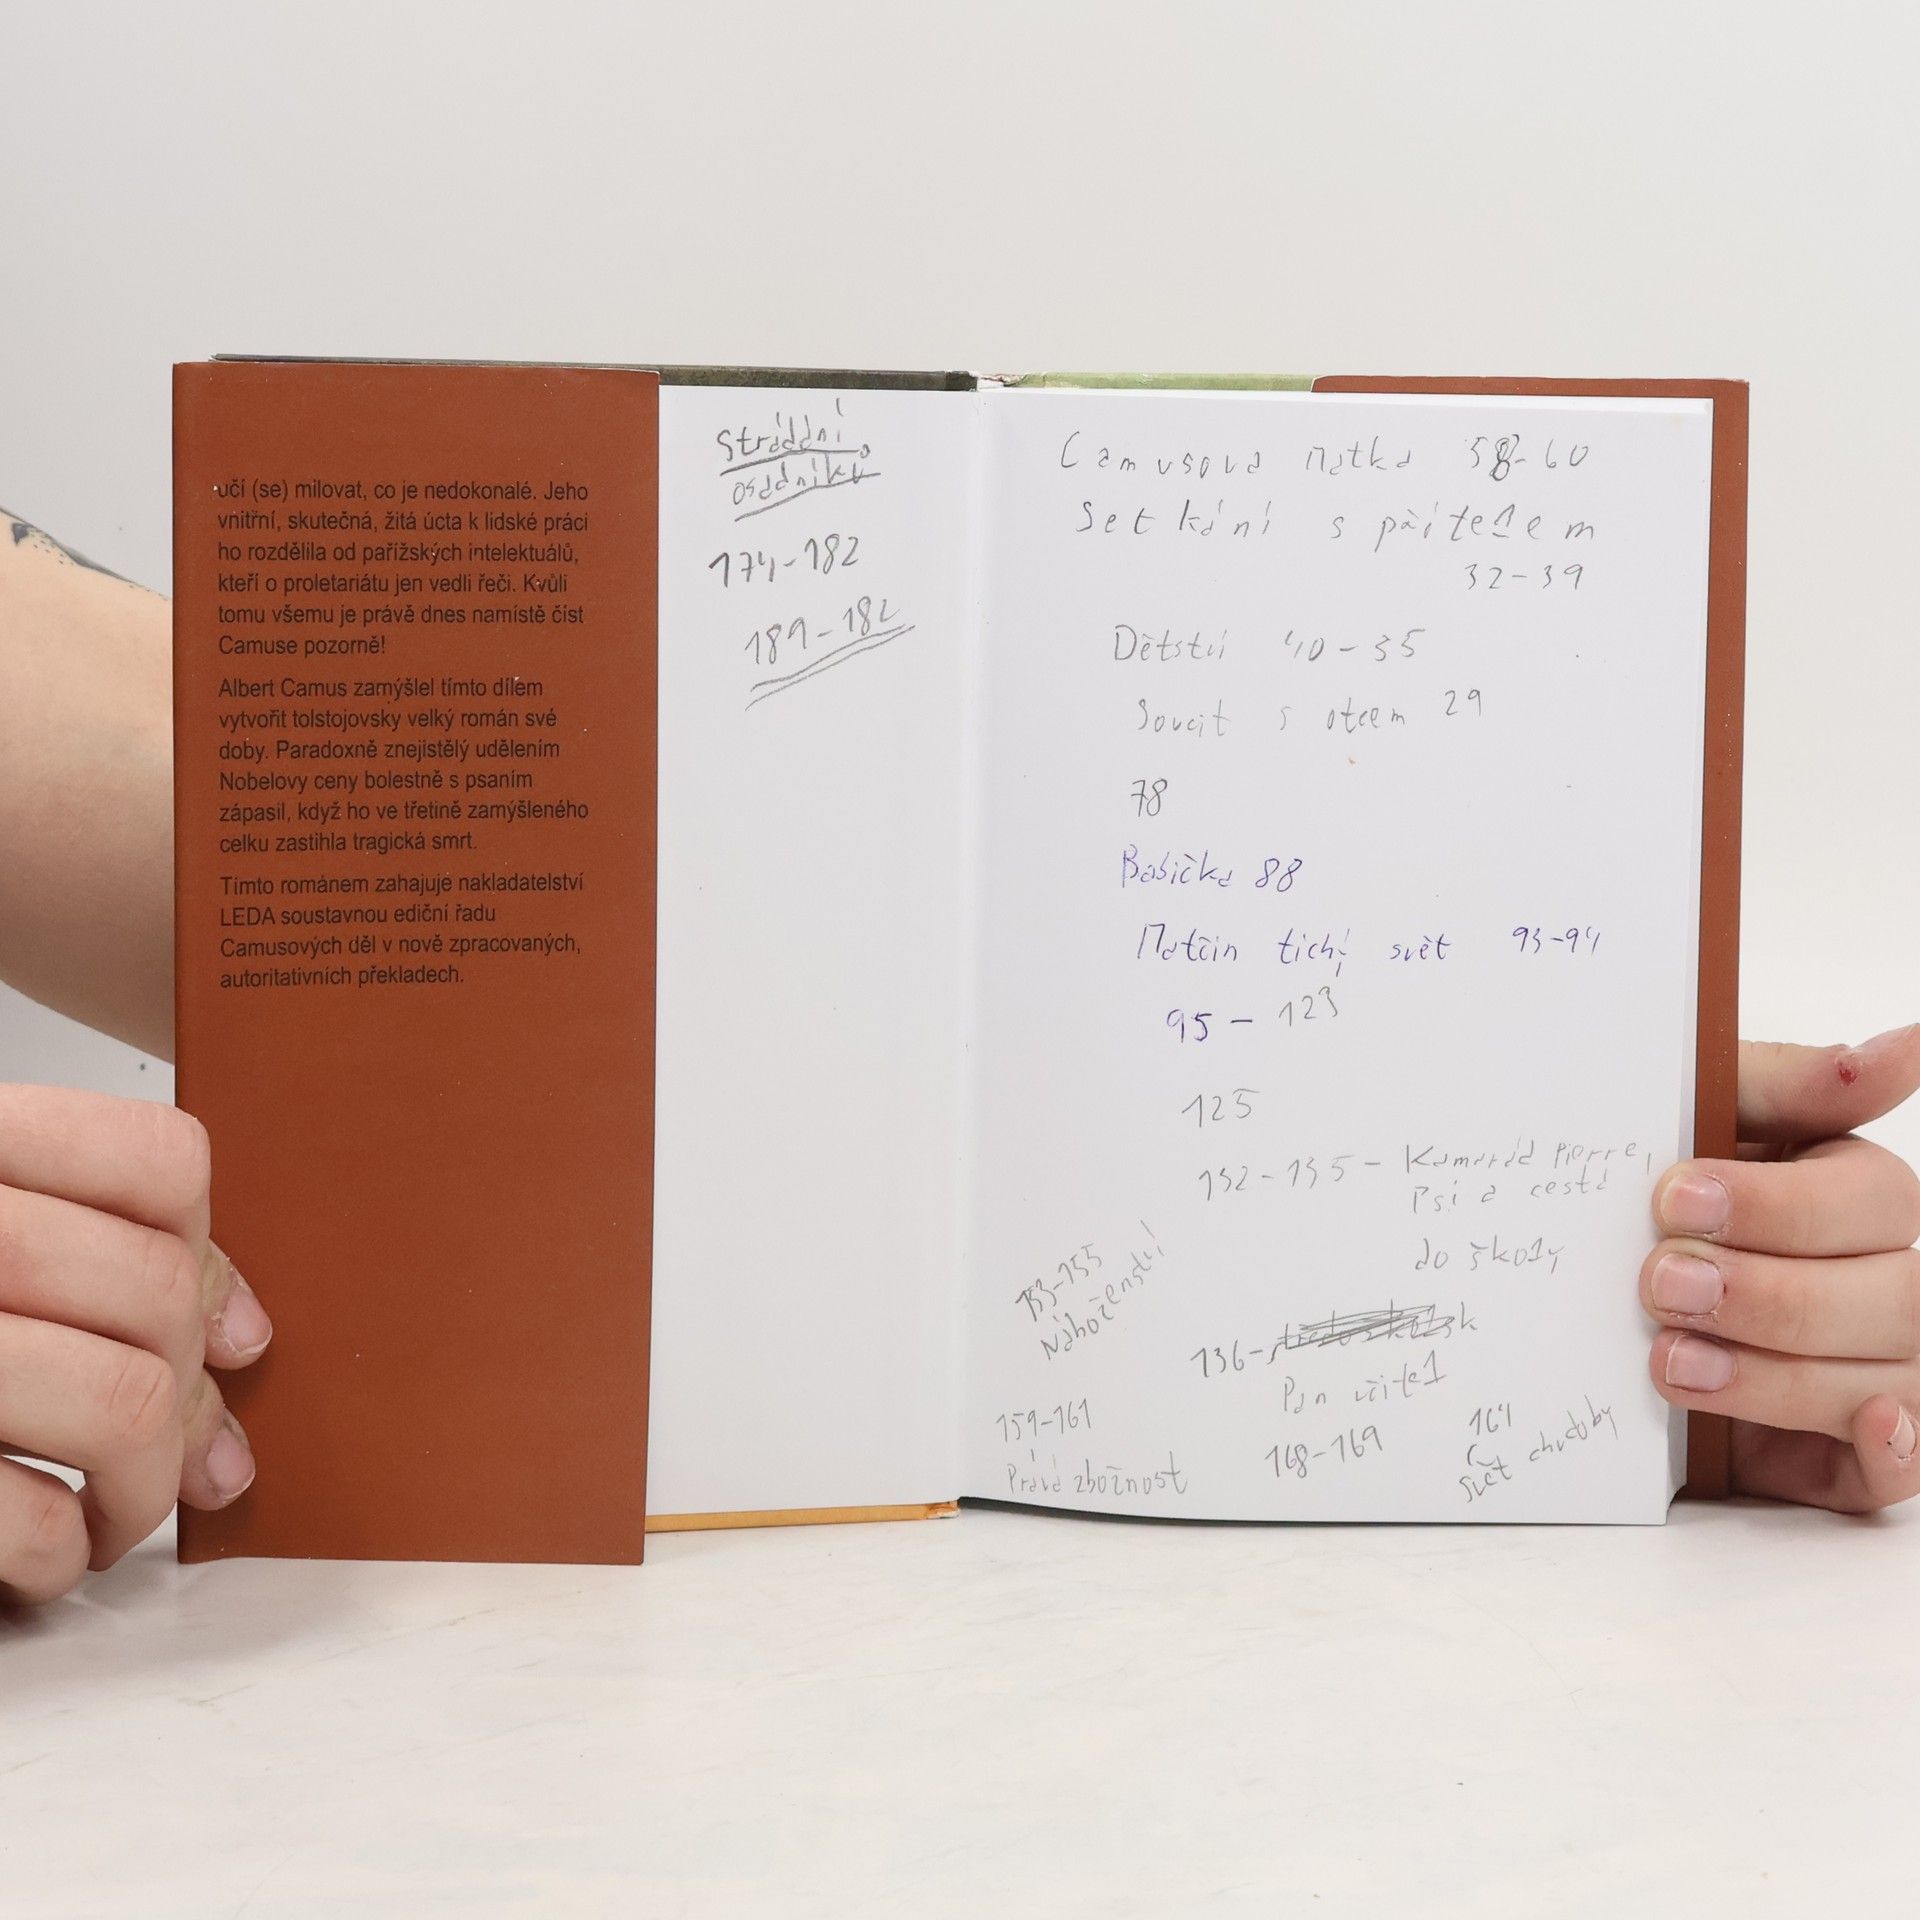 učí (se) milovat, co je nedokonalé. Jeho
vnitřní, skutečná, žitá úcta k lidské práci
ho rozdělila od pařížských intelektuálů,
kteří o proletariátu jen vedli řeči. Kvůli
tomu všemu je právě dnes namístě číst
Camuse pozorně!
Albert Camus zamýšlel tímto dílem
vytvořit tolstojovsky velký román své
doby. Paradoxně znejistělý udělením
Nobelovy ceny bolestně s psaním
zápasil, když ho ve třetině zamýšleného
celku zastihla tragická smrt.
Tímto románem zahajuje nakladatelství
LEDA soustavnou ediční řadu
Camusových děl v nově zpracovaných,
autoritativních překladech.
Strádání
osadníků
174-182
189-182
Camusova Matka 58-60
Setkání s přítelem
32-39
Dětství 40-35
Soucit s otcem 29
78
Babička 88
Matčin tichý svět 93-94
95-123
125
132-135- Kamarád Pierre,
Psi a cesta
do školy
153-155
Náboženství
136-
Pan učitel
159-161
Pravá zbožnost
168-169
164
Svět chudoby